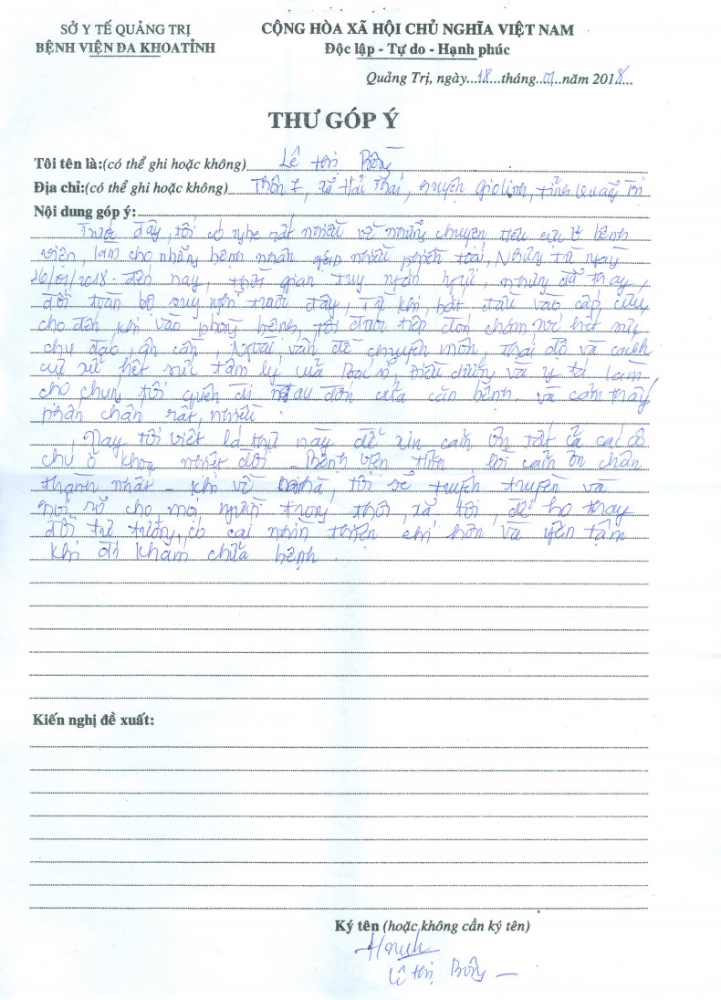 SỞ Y TẾ QUẢNG TRỊ
BỆNH VIỆN ĐA KHOA TỈNH
CỘNG HÒA XÃ HỘI CHỦ NGHĨA VIỆT NAM
Độc lập - Tự do - Hạnh phúc
Quảng Trị, ngày...18...tháng...01...năm 2018...
THƯ GÓP Ý
Tôi tên là:(có thể ghi hoặc không) Lê thị
Địa chỉ:(có thể ghi hoặc không) Thôn , xã Hải Thái, huyện Gio linh, tỉnh Quảng Trị
Nội dung góp ý:
Trước đây, tôi có nghe rất nhiều về những chuyện tiêu cực ở bệnh
viện, làm cho những bệnh nhân nhiều Nhưng từ ngày
16/01/2018 đến nay, thời gian tuy ngắn ngủi, nhưng đã thay
đổi toàn bộ suy nghĩ trước đây, Từ khi bắt đầu vào cấp cứu
cho đến khi vào phòng bệnh, tôi được tiếp đón chăm sóc hết sức
chu đạo, ân cần, vấn đề chuyên môn, thái độ và cách
cư xử hết sức tâm lý của Bác sĩ, Điều dưỡng và y tá làm
cho chúng tôi quên đi đau đớn của căn bệnh và cảm thấy
phấn chấn rất nhiều.
Nay tôi viết lá thư này để xin cảm ơn tất cả các cô
chú ở khoa nhiệt đới - Bệnh viện tỉnh lời cảm ơn chân
thành nhất - khi về nhà, tôi sẽ truyền truyền và
nói rõ cho mọi người trong thôn, xã tôi, để họ thay
đổi tư tưởng, có cái nhìn thiện chí hơn và yên tâm
khi đi khám chữa bệnh.
Kiến nghị đề xuất:
Ký tên (hoặc không cần ký tên)
Lê thị